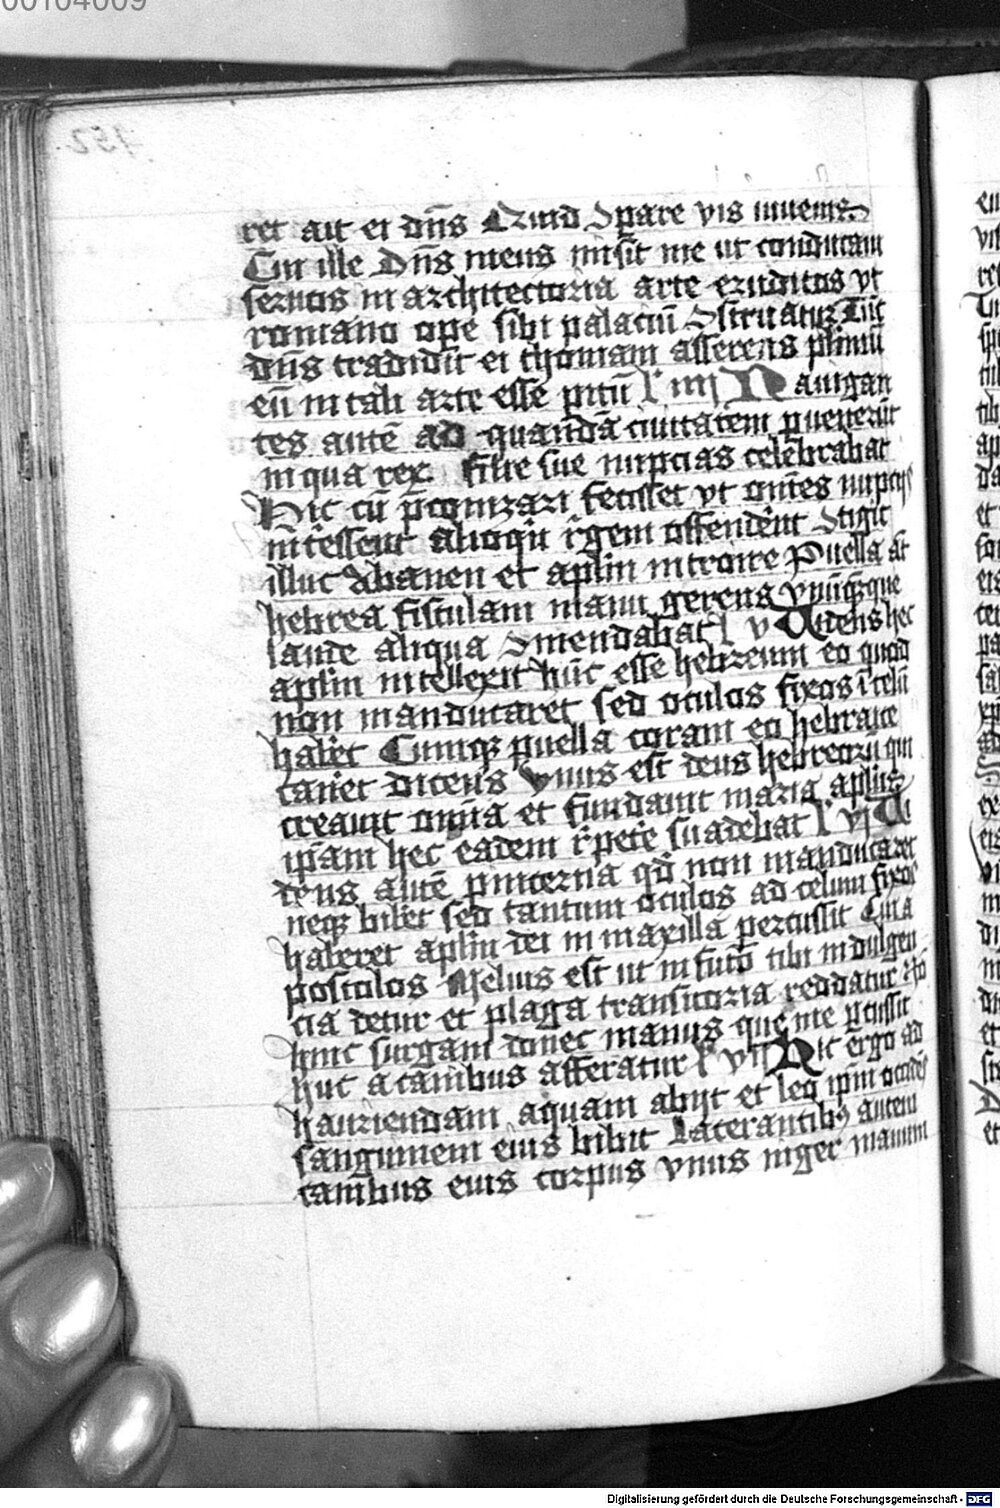 00104009
152
ret ait ei dn̄s Quid ꝯpare vis iuuenis
Cui ille Dn̄s meus misit me ut conducam
seruos in architectoria arte eruditos vt
romano ope sibi palaciū ꝯstruatur Tūc
dn̄s tradidit ei thomam asserens plimū
eū in tali arte esse pitū l' iiij Nauigan
tes autē ad quandā ciuitatem puenerūt
in qua rex filie sue nupcias celebrabat
Hic cū p̄conizari fecisset vt om̄es nupcijs
int̄essent alioqn̄ r̄gem offendent ꝯtigit
illuc Abanen et aplm̄ introire Puella at̄
hebrea fistulam manu gerens vnūquēque
laude aliqua ꝯmendabat l' v Uidens hec
aplm̄ intellexit hūc esse hebreum eo quod
non manducaret sed oculos fixos ī celū
haber̄et Cumqꝫ puella coram eo hebraice
caner̄et dicens vnus est deus hebreorū qui
creauit om̄ia et fundauit maria aplūs
ip̄am hec eadem r̄peter̄e suadebat l' vj Ui
dens autē pincerna qd̄ non manducaret
neqꝫ biberet sed tantum oculos ad celum fixos
haberet aplm̄ dei in maxilla percussit Cui a
postolus Melius est ut in futō tibi indulgen
cia detur et plaga transitoria reddatur No
hinc surgam donec manus que me pcussit
huc a canibus afferatur l' vij Hic ergo ad
hauriendam aquam abijt et leo ip̄m occidēs
sanguinem eius bibit Lacerantibꝰ autem
canibus eius corpus vnus niger manum
Digitalisierung gefördert durch die Deutsche Forschungsgemeinschaft - DFG